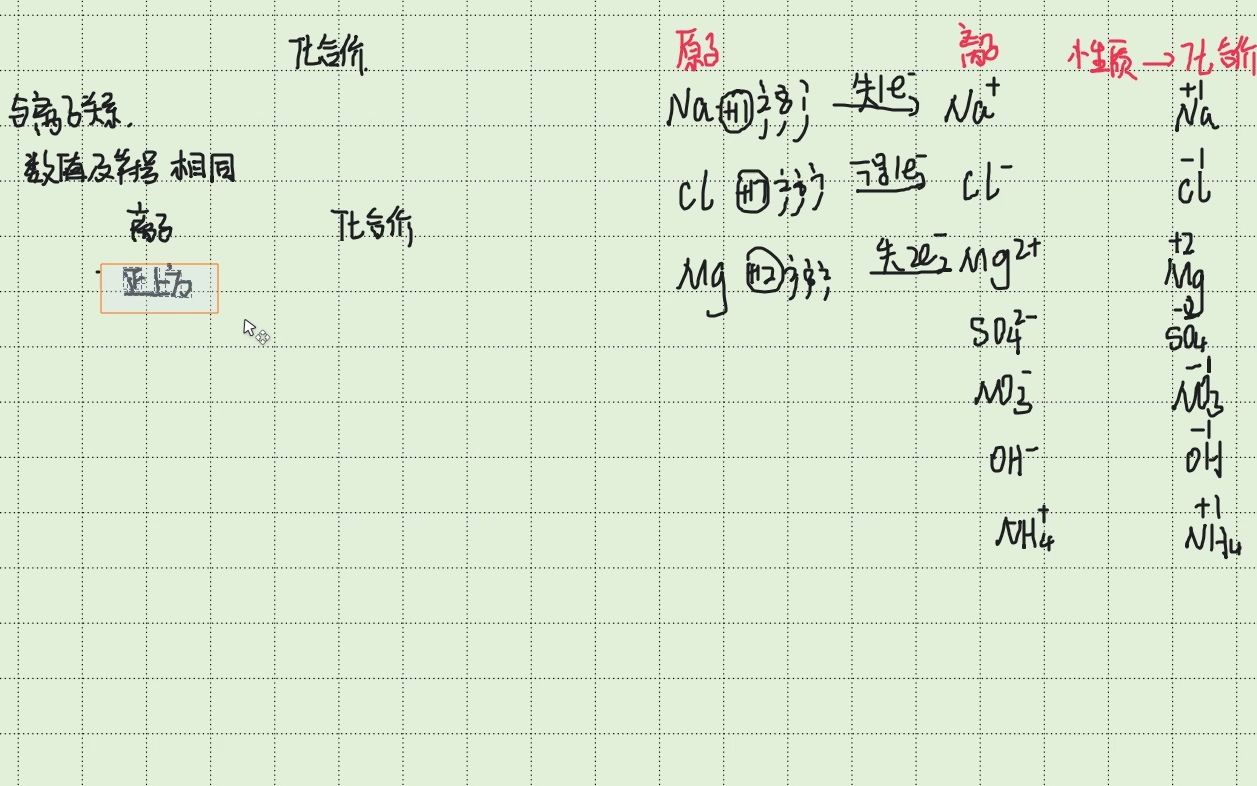 化合价
与离子关系.
数值及符号 相同
离子 化合价
正上方
原子 离子 性质→化合价
Na +11 2 8 1 失1e⁻ Na⁺ +1 Na
Cl +17 2 8 7 得1e⁻ Cl⁻ -1 Cl
Mg +12 2 8 2 失2e⁻ Mg²⁺ +2 Mg
SO₄²⁻ -2 SO₄
NO₃⁻ -1 NO₃
OH⁻ -1 OH
NH₄⁺ +1 NH₄